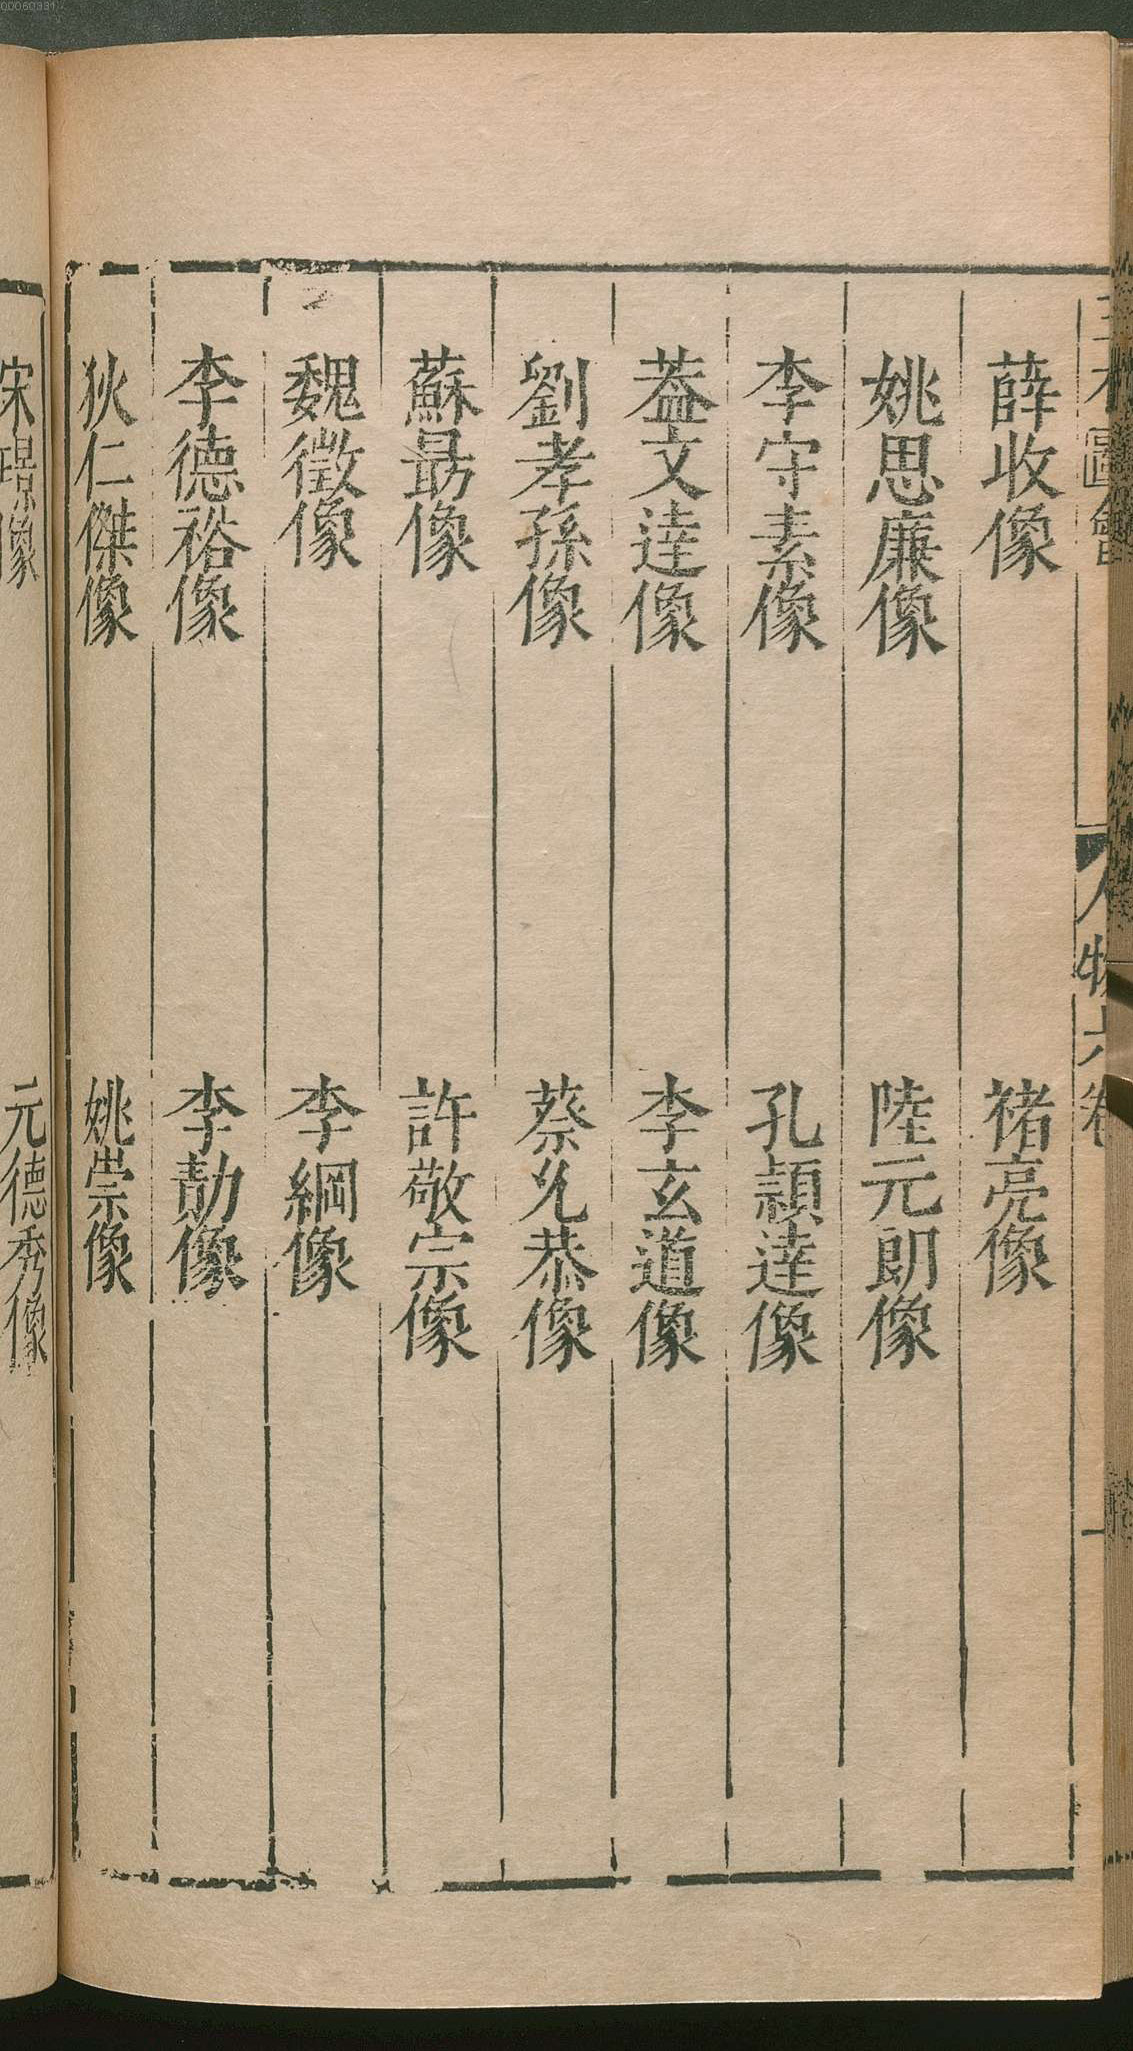 00060331
三才圖會
人物六卷
一
薛收像
褚亮像
姚思廉像
陸元朗像
李守素像
孔頴達像
葢文達像
李玄道像
劉孝孫像
蔡允恭像
蘇勗像
許敬宗像
魏徵像
李綱像
李德裕像
李勣像
狄仁傑像
姚崇像
宋璟像
元德秀像